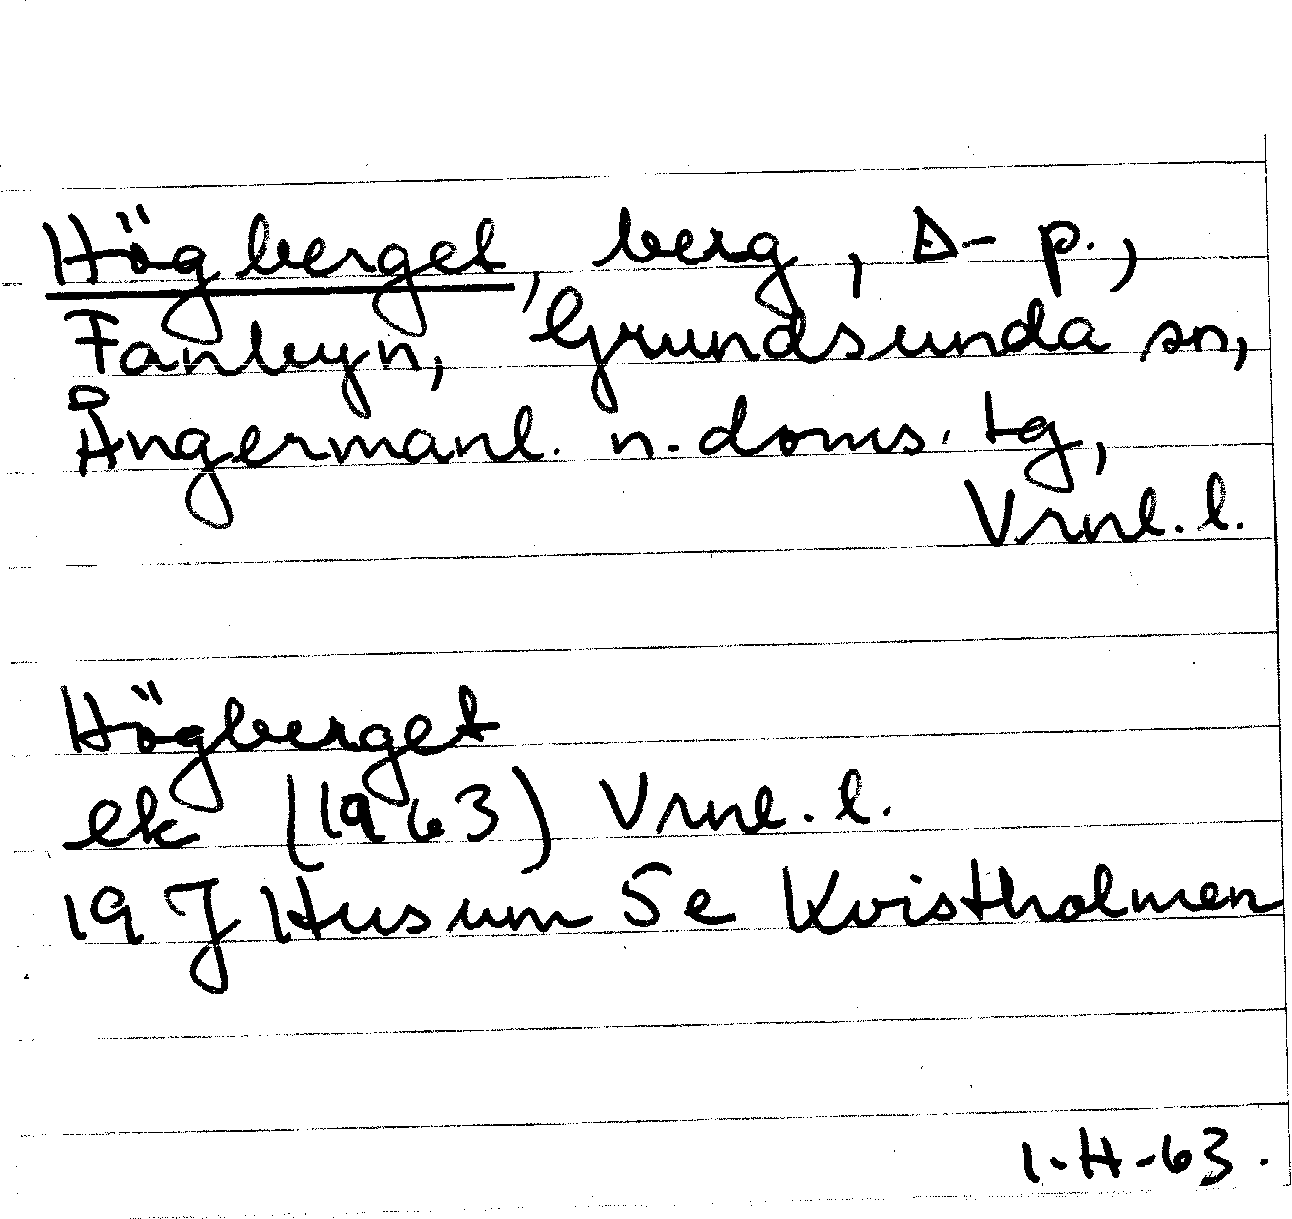 Högberget, berg, Δ-p.,
Fanbyn, Grundsunda sn,
Ångermanl. n. doms. tg,
Vrnl. l.
Högberget
ek (1963) Vrnl. l.
19 J Husum Se Kvistholmen
1-H-63.